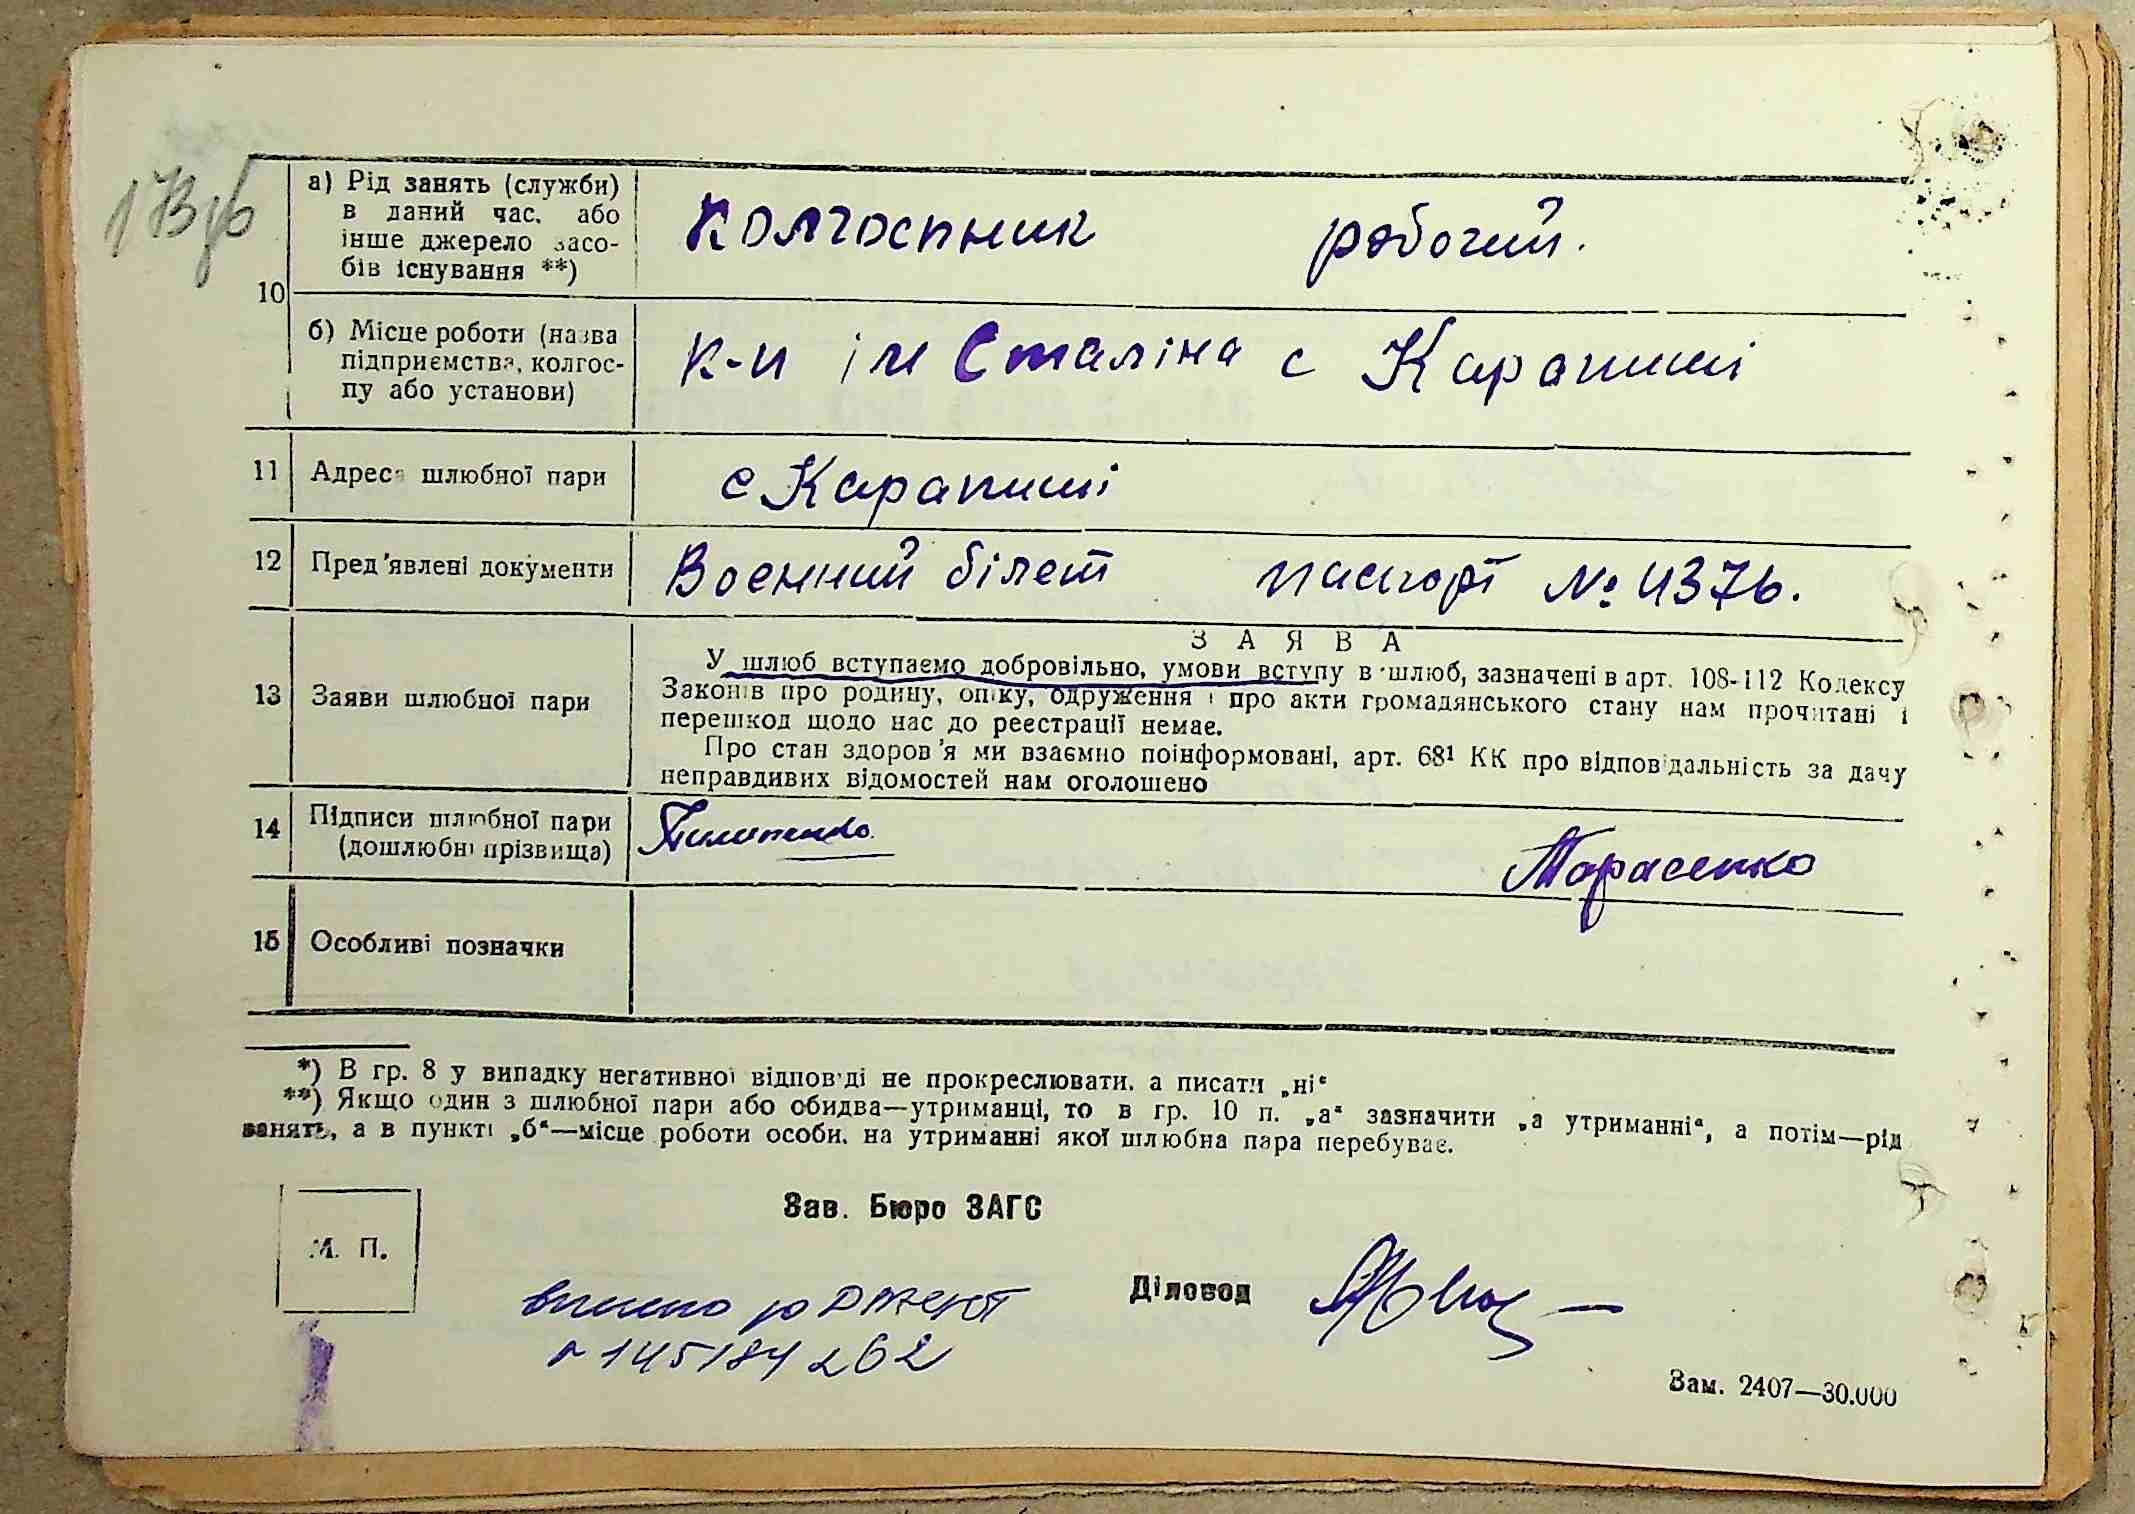 173 зб
10
а) Рід занять (служби)
в даний час, або
інше джерело засо-
бів існування **)
Колгоспник робочий.
б) Місце роботи (назва
підприємства, колгос-
пу або установи)
к-п ім Сталіна с Карапиші
11 Адреса шлюбної пари с Карапиші
12 Пред'явлені документи Воєнний білет паспорт № 4376.
ЗАЯВА
13 Заяви шлюбної пари
У шлюб вступаємо добровільно, умови вступу в шлюб, зазначені в арт. 108-112 Кодексу
Законів про родину, опіку, одруження і про акти громадянського стану нам прочитані і
перешкод щодо нас до реєстрації немає.
Про стан здоров'я ми взаємно поінформовані, арт. 68¹ КК про відповідальність за дачу
неправдивих відомостей нам оголошено
14 Підписи шлюбної пари
(дошлюбні прізвища)
Тарасенко
15 Особливі позначки
*) В гр. 8 у випадку негативної відповіді не прокреслювати, а писати „ні“
**) Якщо один з шлюбної пари або обидва—утриманці, то в гр. 10 п. „а“ зазначити „а утриманні“, а потім—рід
занять, а в пункті „б“—місце роботи особи, на утриманні якої шлюбна пара перебуває.
Зав. Бюро ЗАГС
М. П.
Діловод
145184 262
Зам. 2407—30.000